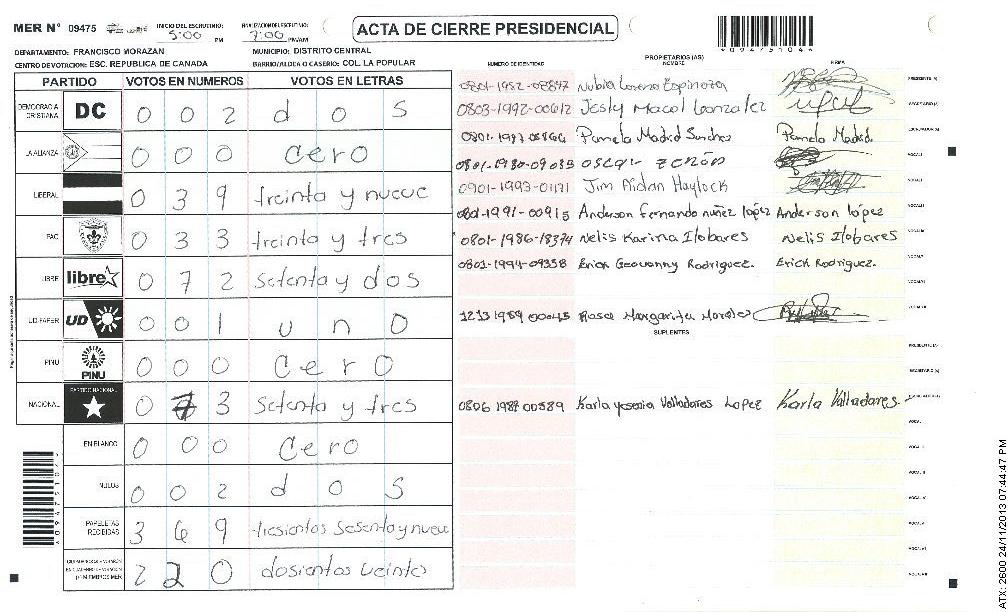 MER N° 09475
INICIO DEL ESCRUTINIO: 5:00 PM
FINALIZACION DEL ESCRUTINIO: 7:00 PM/AM
ACTA DE CIERRE PRESIDENCIAL
DEPARTAMENTO: FRANCISCO MORAZAN
MUNICIPIO: DISTRITO CENTRAL
CENTRO DE VOTACION: ESC. REPUBLICA DE CANADA
BARRIO/ALDEA O CASERIO: COL. LA POPULAR
PARTIDO VOTOS EN NUMEROS VOTOS EN LETRAS
DEMOCRACIA CRISTIANA DC 0 0 2 dos
LA ALIANZA 0 0 0 cero
LIBERAL 0 3 9 treinta y nueve
PAC 0 3 3 treinta y tres
LIBRE libre 0 7 2 setenta y dos
UD-FAPER UD 0 0 1 uno
PINU PINU 0 0 0 cero
NACIONAL PARTIDO NACIONAL 0 7 3 setenta y tres
EN BLANCO 0 0 0 cero
NULOS 0 0 2 dos
PAPELETAS RECIBIDAS 3 6 9 tresientos sesenta y nueve
2 2 0 dosientos veinte
NUMERO DE IDENTIDAD
PROPIETARIOS (AS)
NOMBRE
FIRMA
Nubia Lorena Espinoza PRESIDENTE (A)
0803-1992-00612 Jesly Macol Gonzalez SECRETARIO (A)
Pamela Madrid Sanchez Pamela Madrid. ESCRUTADOR (A)
0801-1980-09035 oscar zerón VOCAL I
0901-1993-01191 Jim Aidan Haylock
0801-1991-00915 Anderson Fernando nuñez lopez Anderson lópez
0801-1986-18374 Nelis Karina Ilobares Nelis Ilobares
0801-1994-09338 Erick Geovanny Rodriguez. Erick Rodriguez.
Rosa Margarita Morales
SUPLENTES
PRESIDENTE (A)
SECRETARIO (A)
0806 1987 00589 Karla yesenia Valladares Lopez Karla Valladares.
0 9 4 7 5 1 0 4 4
ATX: 2600 24/11/2013 07:44:47 PM